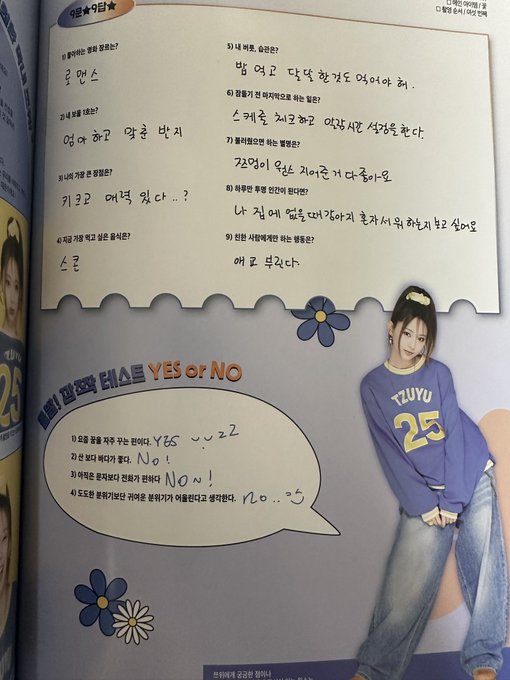 9문★9답★
□ 메인 아이템 / 꽃
□ 촬영 순서 / 여섯 번째
1) 좋아하는 영화 장르는?
로맨스
2) 내 보물 1호는?
엄마하고 맞춘 반지
3) 나의 가장 큰 장점은?
키크고 매력 있다..?
4) 지금 가장 먹고 싶은 음식은?
스콘
5) 내 버릇, 습관은?
밥 먹고 달달한것도 먹어야 해.
6) 잠들기 전 마지막으로 하는 일은?
스케줄 체크하고 알람시간 설정을 한다.
7) 불러줬으면 하는 별명은?
쯔멍이 원스 지어준거 다좋아요
8) 하루만 투명 인간이 된다면?
나 집에 없을때 강아지 혼자서 뭐 하는지 보고 싶어요
9) 친한 사람에게만 하는 행동은?
애교 부린다.
깜짝 테스트 YES or NO
1) 요즘 꿈을 자주 꾸는 편이다. YES zz
2) 산 보다 바다가 좋다. No!
3) 아직은 문자보다 전화가 편하다 NO~!
4) 도도한 분위기보단 귀여운 분위기가 어울린다고 생각한다. no..
TZUYU
25
쯔위에게 궁금한 점이나